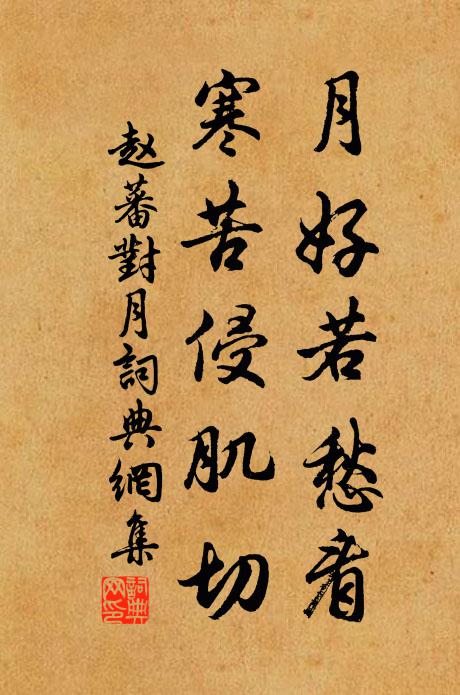 月好若愁看
寒苦侵肌切
赵蕃對月詞典網集
詞典网印